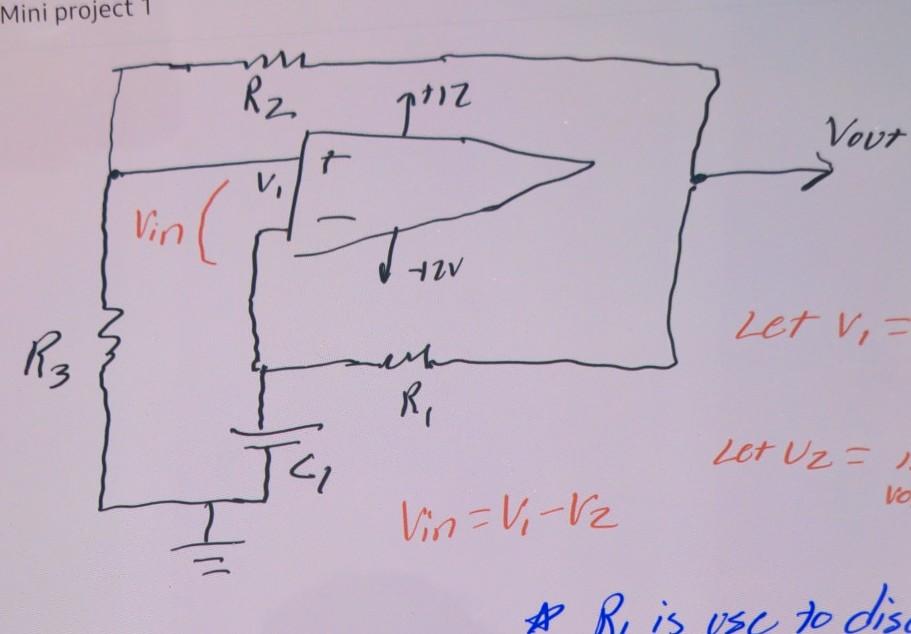 Mini project 1
R2
+12
Vout
V1
+
Vin
−
-12V
Let V1 =
R3
R1
Let V2 =
C1
Vin = V1 - V2
* R1 is use to